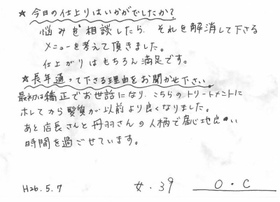 ★今日の仕上りはいかがでしたか?
悩みを相談したら、それを解消して下さる
メニューを考えて頂きました。
仕上がりはもちろん満足です。
★長年通って下さる理由をお聞かせ下さい。
最初は矯正でお世話になり、こちらのトリートメントに
ホレてから髪質が以前より良くなりました。
あと店長さんと丹羽さんの人柄で居心地良い
時間を過ごせています。
H26.5.7 女・39 O・C